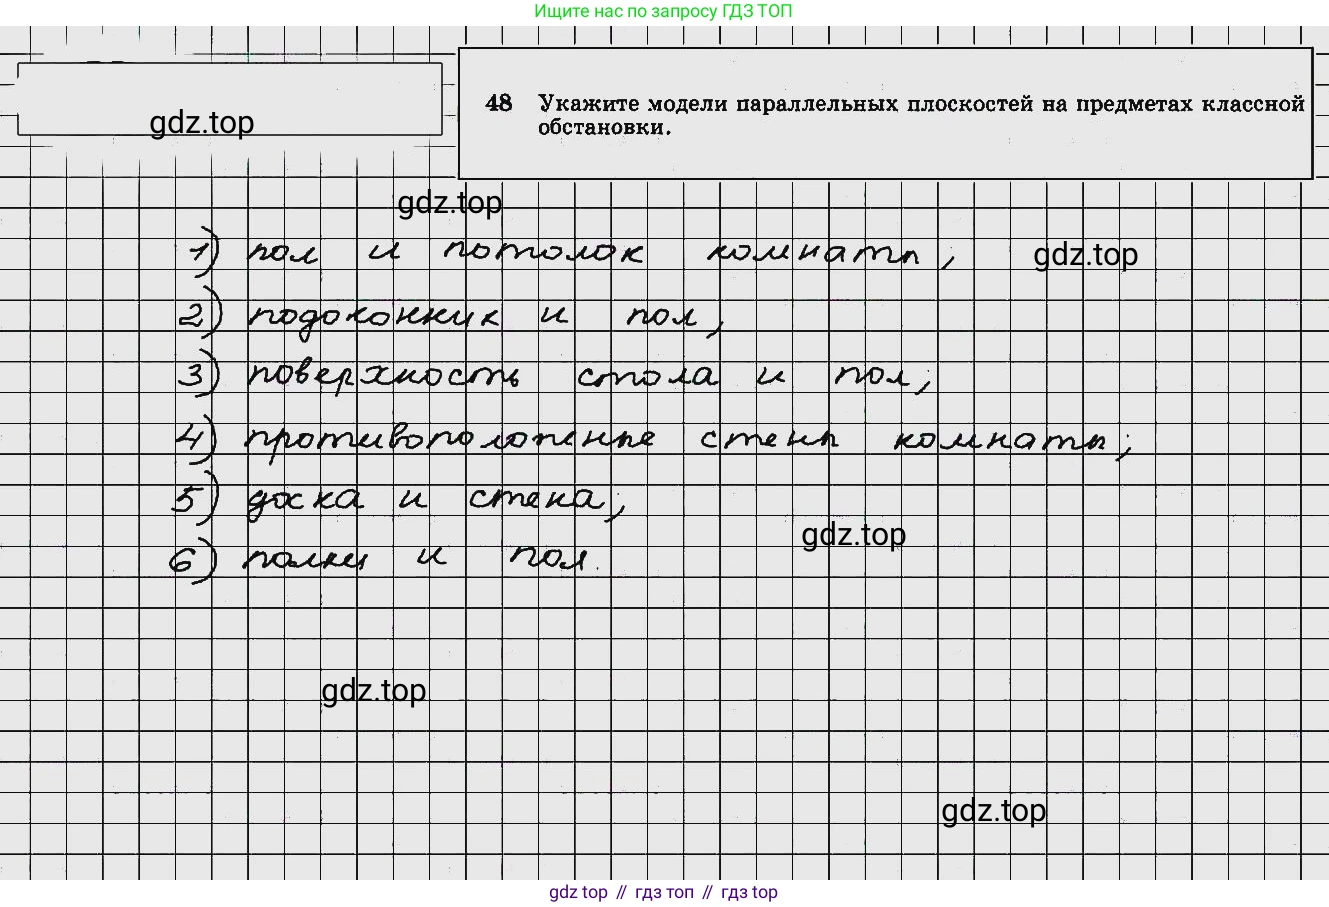 Ищите нас по запросу ГДЗ ТОП
48 Укажите модели параллельных плоскостей на предметах классной
обстановки.
gdz.top
gdz.top
1) пол и потолок комнаты,
gdz.top
2) подоконник и пол,
3) поверхность стола и пол;
4) противоположные стены комнаты;
5) доска и стена;
gdz.top
6) полки и пол.
gdz.top
gdz.top
gdz top // гдз топ // гдз top